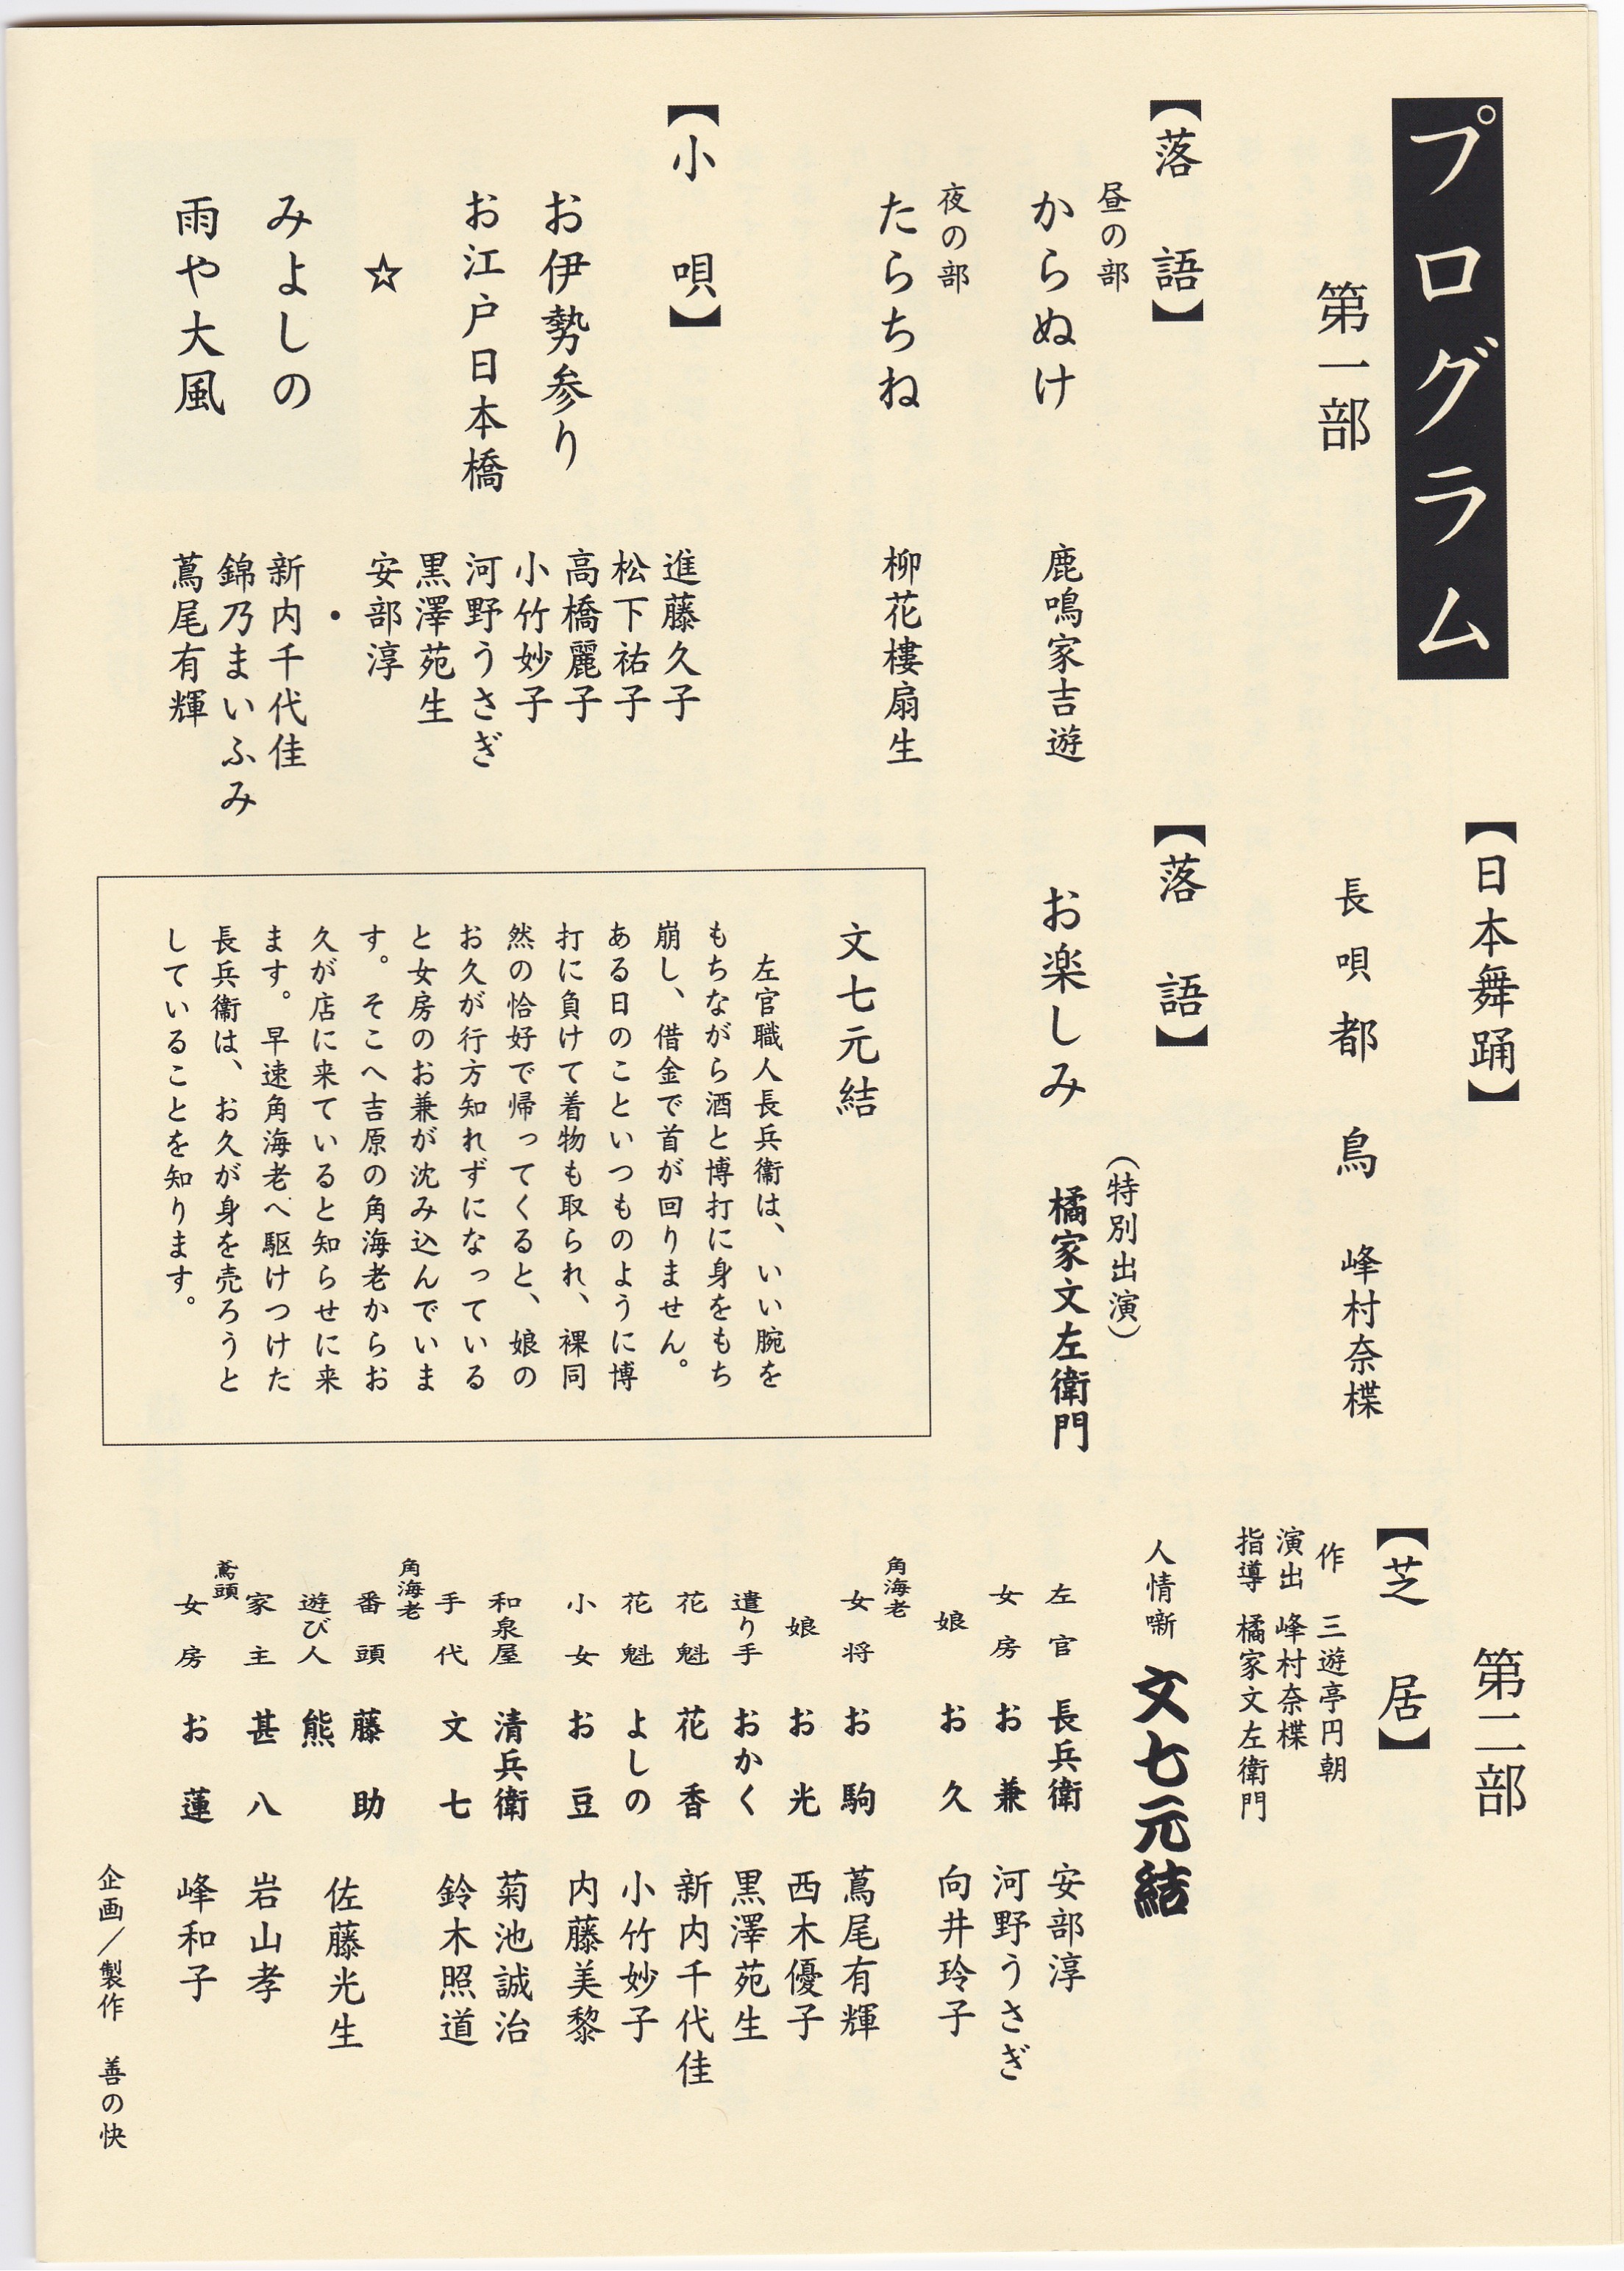 プログラム
第一部
【落語】
昼の部
からぬけ
鹿鳴家吉遊
夜の部
たらちね
柳花樓扇生
【小唄】
お伊勢参り
お江戸日本橋
☆
みよしの
雨や大風
進藤久子
松下祐子
高橋麗子
小竹妙子
河野うさぎ
黒澤苑生
安部淳
・
新内千代佳
錦乃まいふみ
蔦尾有輝
【日本舞踊】
長唄 都鳥 峰村奈楪
【落語】
お楽しみ
(特別出演)
橘家文左衛門
文七元結
左官職人長兵衞は、いい腕を
もちながら酒と博打に身をもち
崩し、借金で首が回りません。
ある日のこといつものように博
打に負けて着物も取られ、裸同
然の恰好で帰ってくると、娘の
お久が行方知れずになっている
と女房のお兼が沈み込んでいま
す。そこへ吉原の角海老からお
久が店に来ていると知らせに来
ます。早速角海老へ駆けつけた
長兵衞は、お久が身を売ろうと
していることを知ります。
第二部
【芝居】
作 三遊亭円朝
演出 峰村奈楪
指導 橘家文左衛門
人情噺 文七元結
左官 長兵衛 安部淳
女房 お兼 河野うさぎ
娘 お久 向井玲子
角海老
女将 お駒 蔦尾有輝
娘 お光 西木優子
遣り手 おかく 黒澤苑生
花魁 花香 新内千代佳
花魁 よしの 小竹妙子
小女 お豆 内藤美黎
和泉屋 清兵衛 菊池誠治
手代 文七 鈴木照道
角海老
番頭 藤助
遊び人 熊
佐藤光生
家主 甚八 岩山孝
鳶頭
女房 お蓮 峰和子
企画/製作 善の快